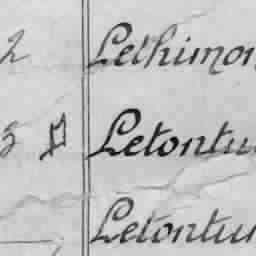 2 Lethimon
3 Letontu
Letontur